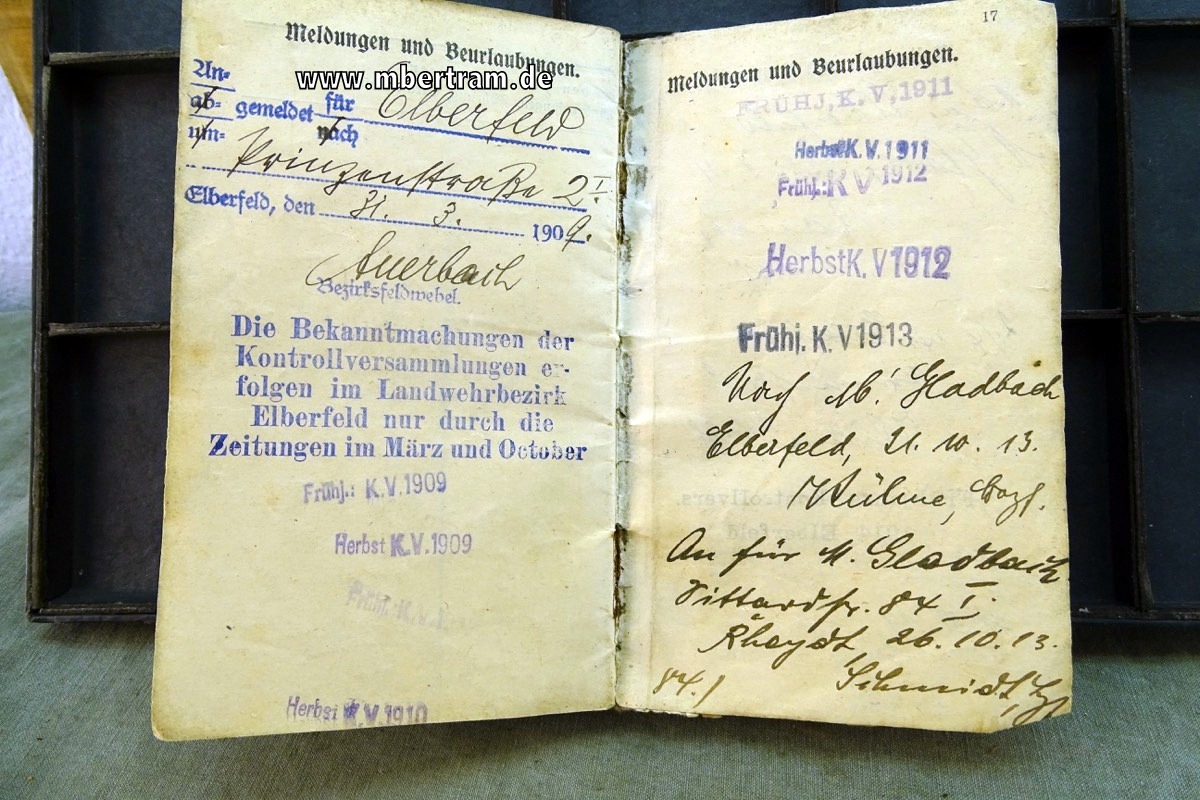 Meldungen und Beurlaubungen.
www.mbertram.de
An-
ab- gemeldet für Elberfeld
um- nach
Prinzenstraße 2 I.
Elberfeld, den 31. 3. 1909.
Auerbach
Bezirksfeldwebel.
Die Bekanntmachungen der
Kontrollversammlungen er-
folgen im Landwehrbezirk
Elberfeld nur durch die
Zeitungen im März und October
Frühj.: K.V.1909
Herbst K.V.1909
Frühj. K.V.1
Herbst K.V.1910
17
Meldungen und Beurlaubungen.
FRÜHJ, K. V, 1911
Herbst K.V.1911
Frühj.: K V 1912
Herbst K. V 1912
Frühj. K. V 1913
Nach M. Gladbach
Elberfeld, 21. 10. 13.
An für M. Gladbach
Sittardstr. 84 I.
Rheydt, 26. 10. 13.
84. Schmidt,